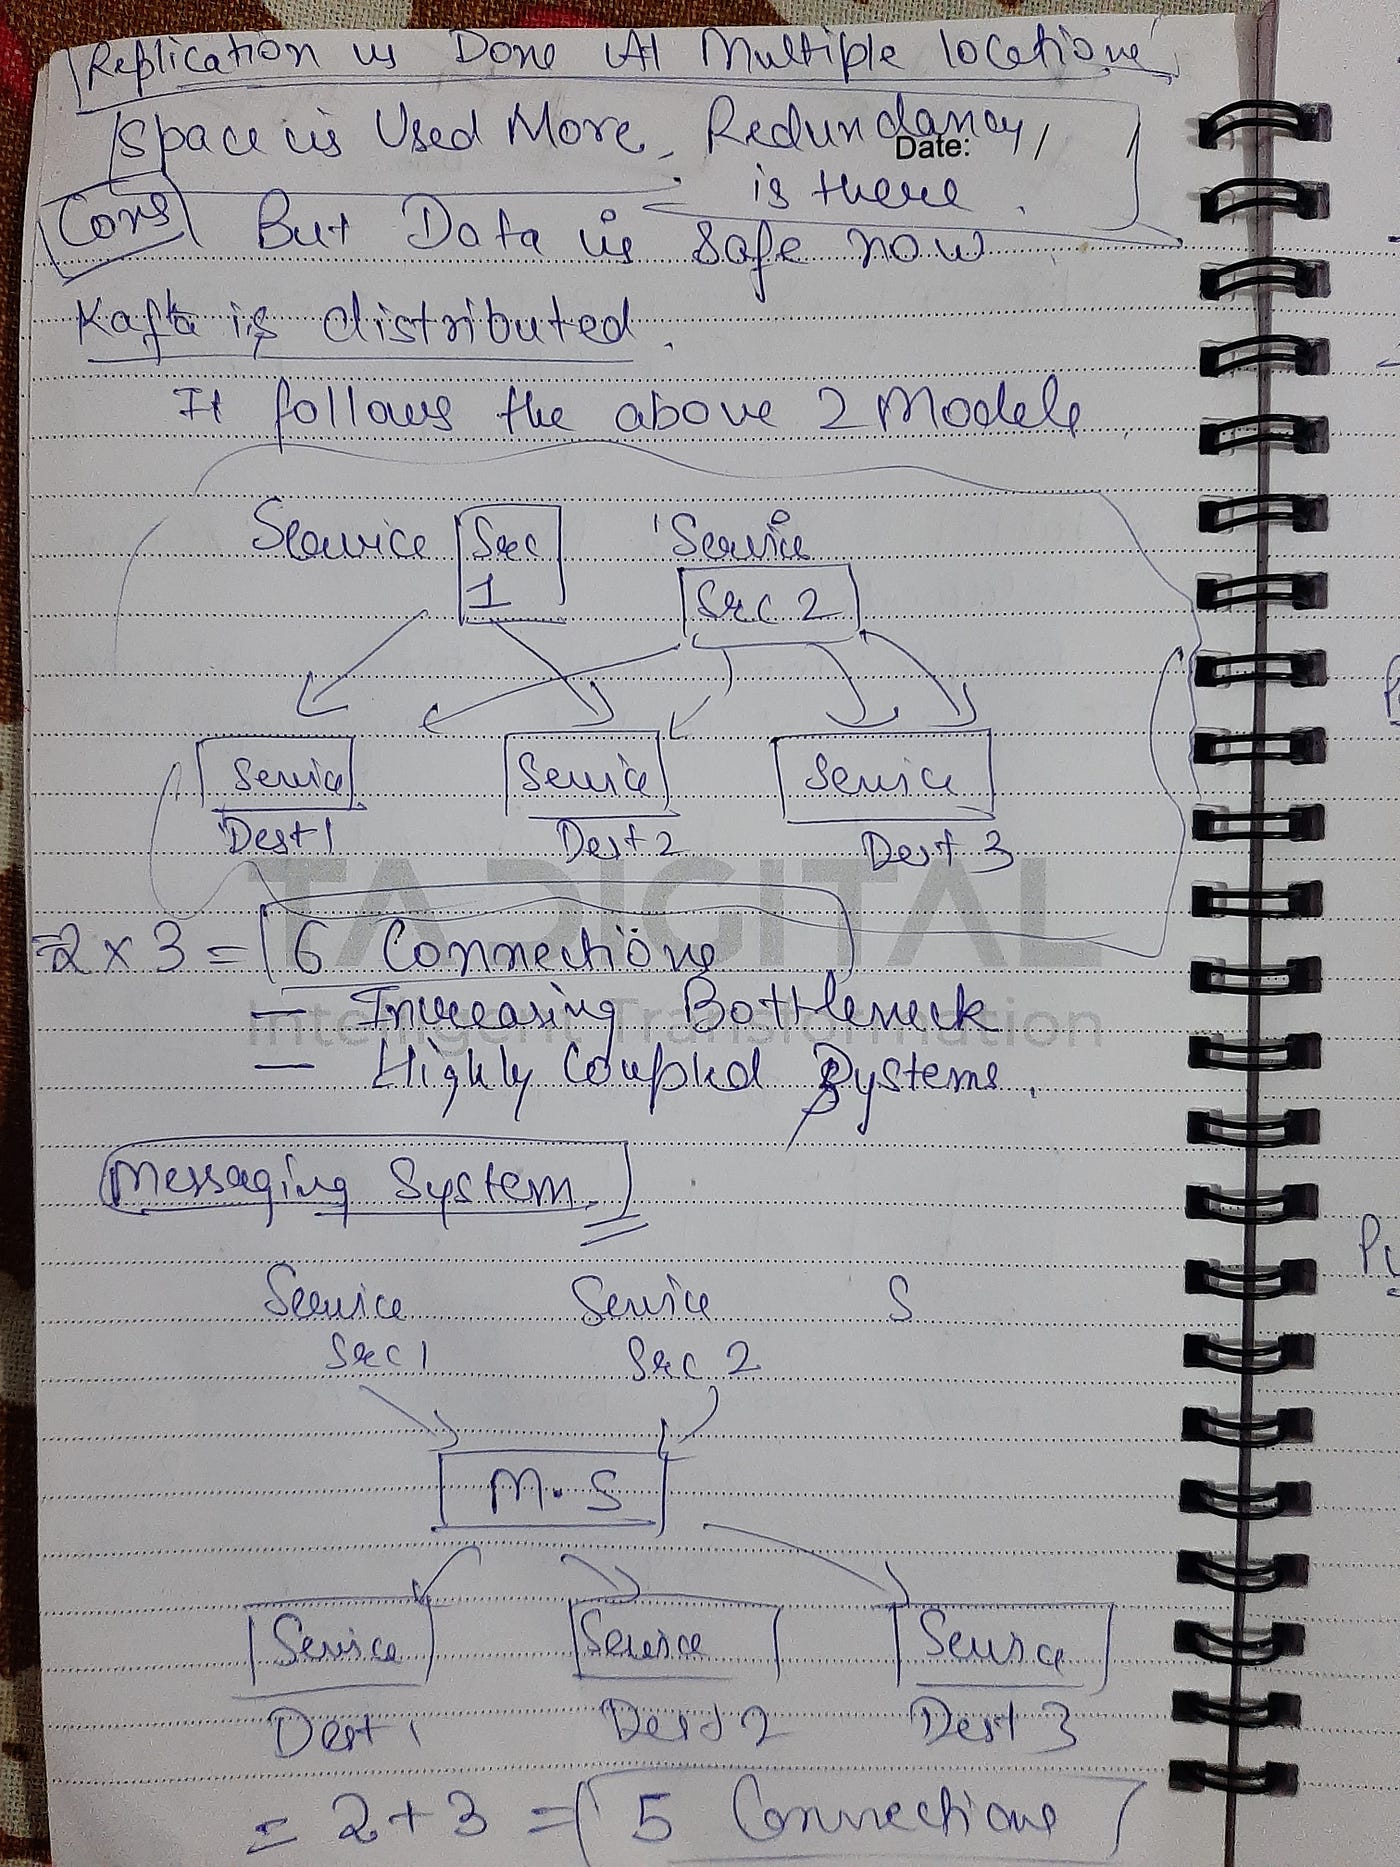 Replication is Done At Multiple locations
Space is Used More, Redundancy,
Date:
is there.
Cons But Data is safe now
Kafka is distributed.
It follows the above 2 Models.
Service Src 1 Service Src 2
Service Service Service
Dest 1 Dest 2 Dest 3
TA DIGITAL
=2 x 3 = 6 Connections
Intelligent Transformation
— Increasing Bottleneck
— Highly Coupled Systems.
Messaging System.
Service Service S
Src 1 Src 2
M.S
Service Service Service
Dest 1 Dest 2 Dest 3
= 2+3 = 5 Connections